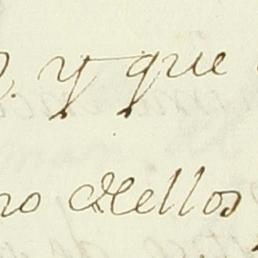 y que
no dellos